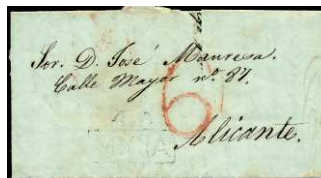 Sor. D. José Manresa.
Calle Mayor nº. 87.
6
Alicante.